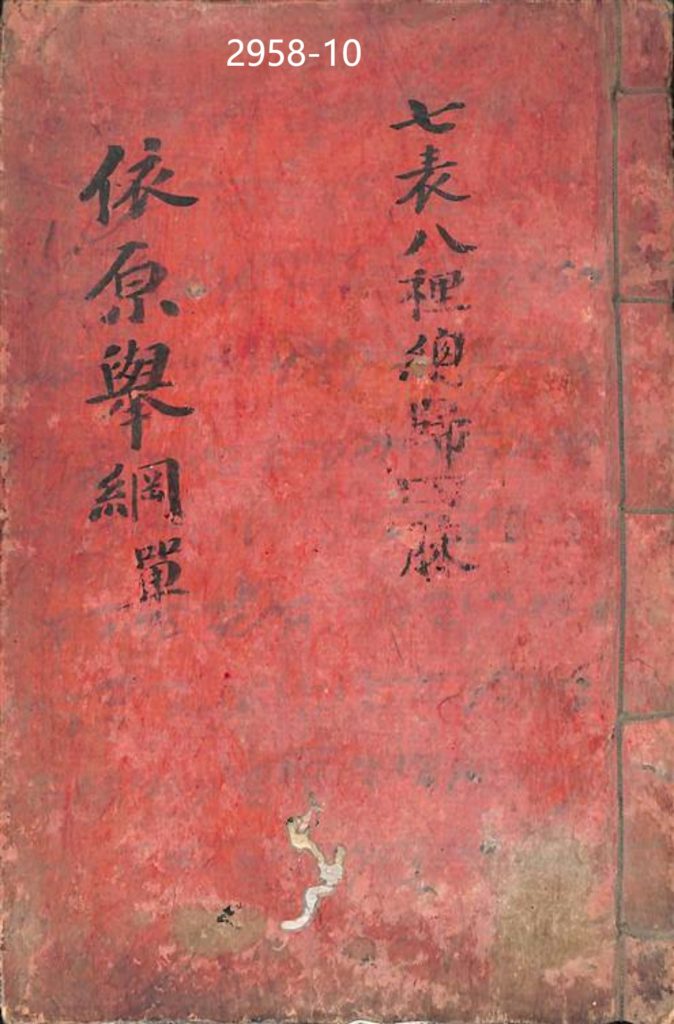 2958-10
七表八裡總歸脉
依原舉綱單